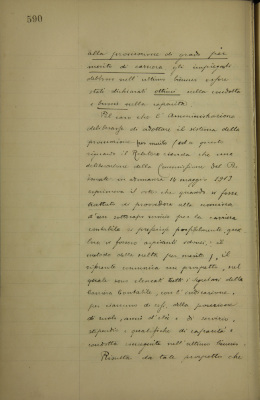 590
alla promozione di grado per
merito di carriera gli impiegati
debbono nell'ultimo biennio essere
stati dichiarati ottimi nella condotta
e buoni nella capacità.
Pel caso che l'Amministrazione
deliberasse di adottare il sistema della
promozione per merito (ed a questo
riguardo il Relatore ricorda che una
deliberazione della Commissione del
in adunanza 14 maggio 1913
esprimeva il voto che quando si fosse
trattato di provvedere alla nomina
d'un per la carriera
contabile si preferisse possibilmente, qua
lora vi fossero aspiranti idonei, il
metodo della scelta per merito), il
rassegna un prospetto, nel
quale sono elencati tutti i della
carriera Contabile, con l'indicazione,
per ciascuno di essi, della posizione
di ruolo, anni d'età e di servizio,
stipendio e qualifiche di capacità e
condotta conseguite nell'ultimo biennio.
Risulta da tale prospetto che